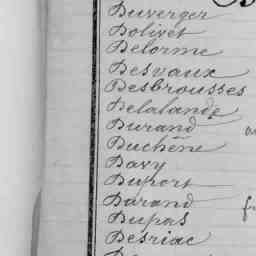 Duverger
Dolivet
Delorme
Desvaux
Desbrousses
Delalande
Durand
Duchêne
Davy
Duport
Durand
Dupas
Desriac